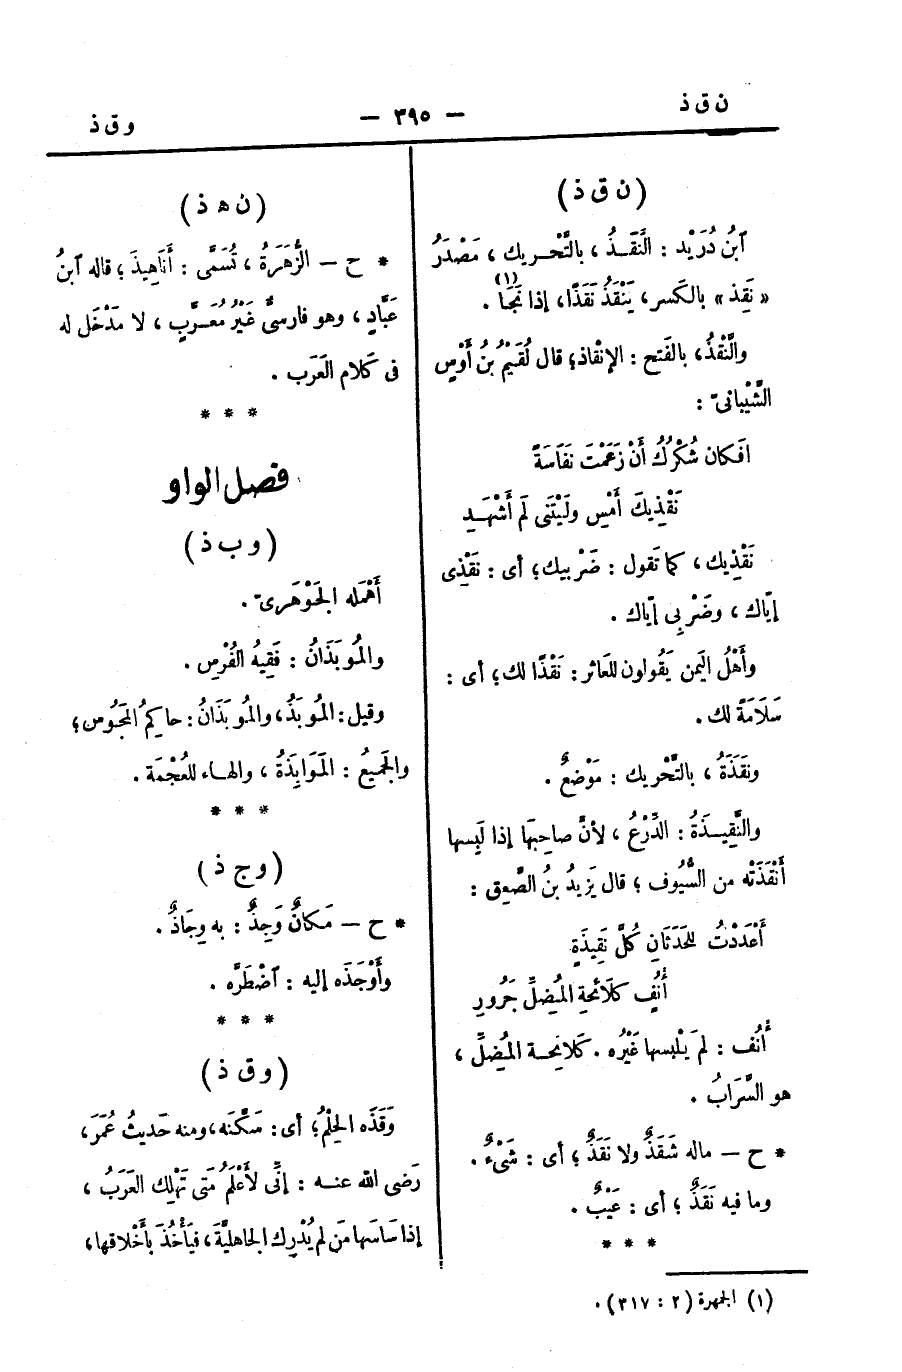 ن ق ذ
— ٣٩٥ —
و ق ذ
( ن ق ذ )
ٱبنُ دُرَيْد : النَّقَذُ ، بالتَّحْريك ، مَصْدَرُ
« نَقِذ » بالكَسر ، يَنْقَذُ نَقَذًا ، إذا نَجَا (١) .
والنَّقْذُ ، بالفَتح : الإنْقاذ ؛ قال لُقَيْمُ بنُ أَوْسٍ
الشَّيْبانىّ :
افَكان شُكْرُكُ أَنْ زَعَمْتَ نَفَاسَةً
نَقْذِيكَ أَمْسِ ولَيْتَنى لَم أَشْهَـدِ
نَقْذِيك ، كما تَقول : ضَرْبيك ؛ أى : نَقْذى
إيّاك ، وضَرْبِى إيّاك .
وأَهْلُ اليَمن يَقُولون للعَاثر : نَقْذًا لك ؛ أى :
سَلَامَةً لك .
ونَقَذَةُ ، بالتَّحْريك : مَوْضعٌ .
والنَّقِيـذَةُ : الدِّرْعُ ، لأنّ صاحِبَها إذا لَبِسها
أَنْقَذَتْه من السُّيُوف ؛ قال يَزيدُ بنُ الصَّعِق :
أَعْدَدْتُ للحَدَثَانِ كُلَّ نَقِيذَةٍ
أُنُفٍ كلَائحةِ المُضِلِّ جَرُورِ
أُنُف : لم يَلْبسها غَيْرُه . كَلائحـة المُضِلِّ ،
هو السَّرَابُ .
* ح — ماله شَقَذٌ ولا نَقَذٌ ؛ أى : شَىْءٌ .
وما فيه نَقَذٌ ؛ أى : عَيْبٌ .
* * *
(١) الجمهرة (٢ : ٣١٧) .
( ن ه ذ )
* ح — الزُّهَرَةُ ، تُسَمَّى : أَنَاهِيذَ ؛ قاله ٱبنُ
عَبَّادٍ ، وهو فارسىٌّ غَيْرُ مُعَـرَّبٍ ، لا مَدْخَل له
فى كَلام العَرَب .
* * *
فصل الواو
( و ب ذ )
أَهْمَله الجَوْهَرىّ .
والمُوبَذَانُ : فَقِيهُ الفُرْسِ .
وقيل : المُوبَذُ ، والمُوبَذَانُ : حاكمُ المَجَوُس ؛
والجَميعُ : المَوَابِذَةُ ، والهـاء للعُجْمَة .
* * *
( و ج ذ )
* ح — مَكانٌ وَجِذٌ : به وِجَاذٌ .
وأَوْجَذَه إليه : ٱضْطَرَّه .
* * *
( و ق ذ )
وَقَذَه الحِلْمُ ؛ أى : سَكَّنَه ، ومنه حَديثُ عُمَرَ ،
رَضى الله عنـه : إنِّى لأَعْلَمُ مَتى تَهْلِك العَرَبُ ،
إذا سَاسَها مَن لم يُدْرِك الجاهليَّةَ ، فيَأْخُذَ بأَخْلاقها ،